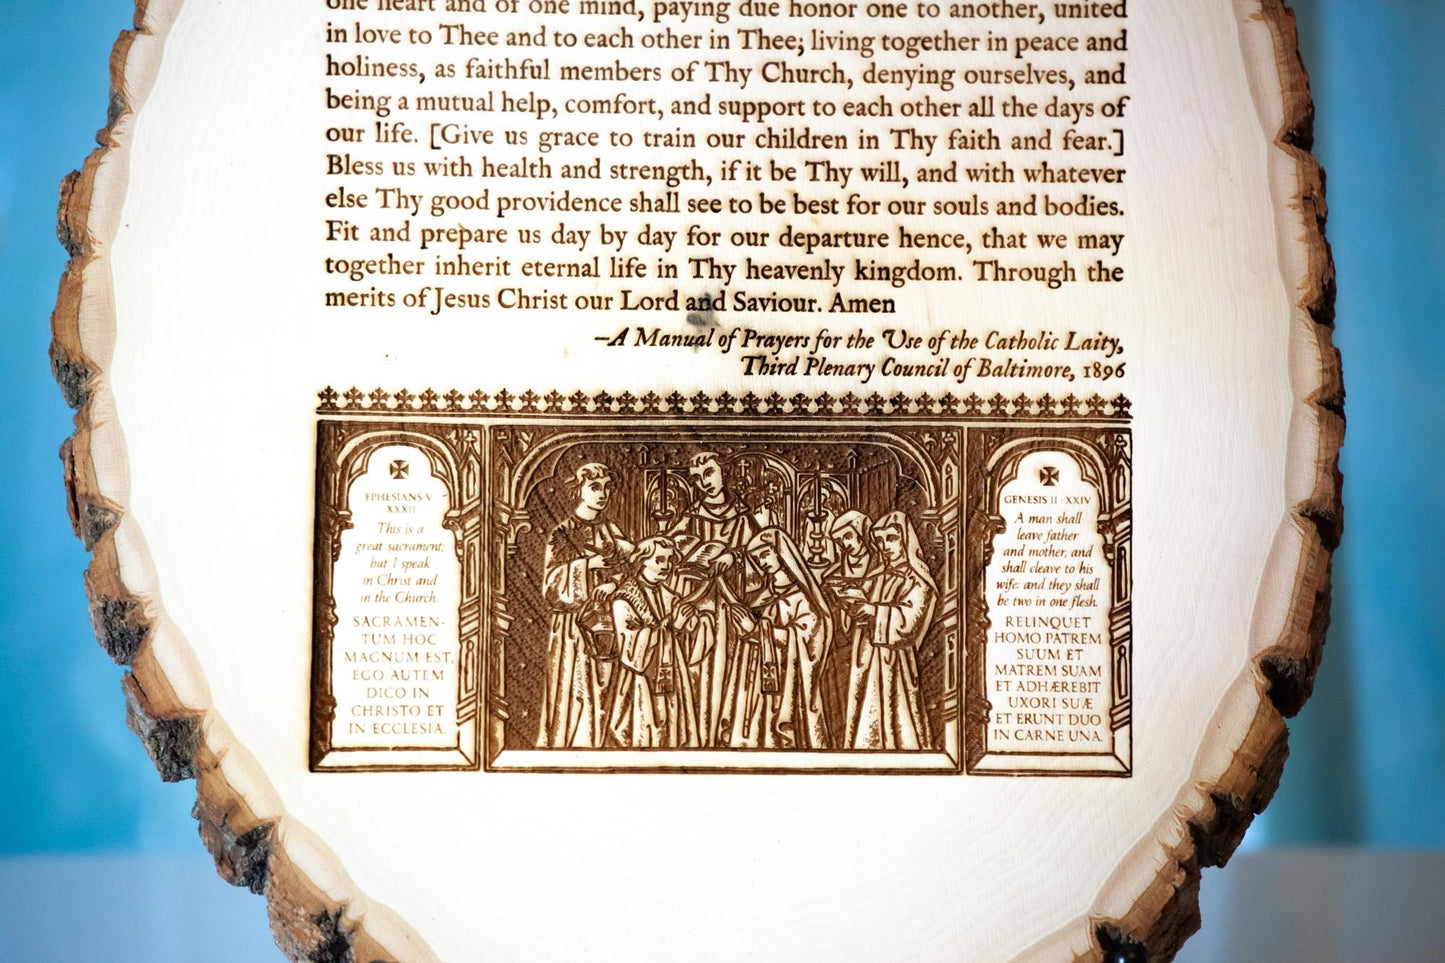 one heart and of one mind, paying due honor one to another, united
in love to Thee and to each other in Thee; living together in peace and
holiness, as faithful members of Thy Church, denying ourselves, and
being a mutual help, comfort, and support to each other all the days of
our life. [Give us grace to train our children in Thy faith and fear.]
Bless us with health and strength, if it be Thy will, and with whatever
else Thy good providence shall see to be best for our souls and bodies.
Fit and prepare us day by day for our departure hence, that we may
together inherit eternal life in Thy heavenly kingdom. Through the
merits of Jesus Christ our Lord and Saviour. Amen
—A Manual of Prayers for the Use of the Catholic Laity,
Third Plenary Council of Baltimore, 1896
EPHESIANS V
XXXII
This is a
great sacrament;
but I speak
in Christ and
in the Church.
SACRAMEN-
TUM HOC
MAGNUM EST,
EGO AUTEM
DICO IN
CHRISTO ET
IN ECCLESIA.
GENESIS II : XXIV
A man shall
leave father
and mother, and
shall cleave to his
wife: and they shall
be two in one flesh.
RELINQUET
HOMO PATREM
SUUM ET
MATREM SUAM
ET ADHÆREBIT
UXORI SUÆ
ET ERUNT DUO
IN CARNE UNA.